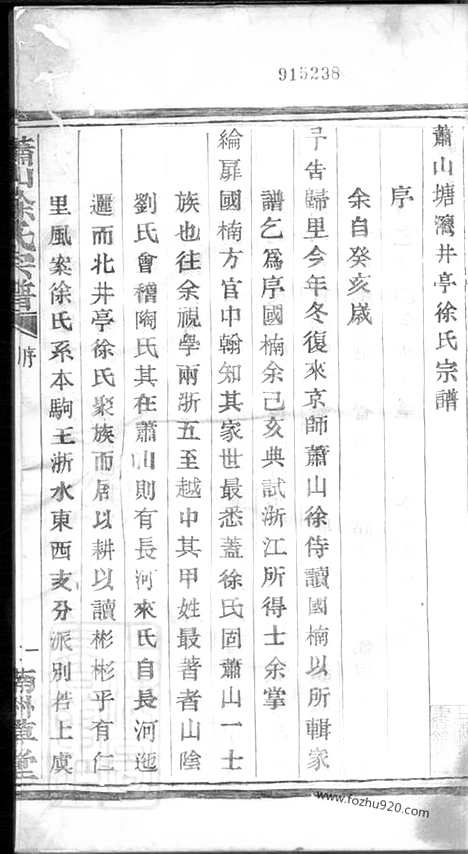 915238
蕭山塘灣井亭徐氏宗譜
序
余自癸亥歲
予告歸里今年冬復來京師蕭山徐侍讀國楠以所輯家
譜乞為序國楠余己亥典試浙江所得士余掌
綸扉國楠方官中翰知其家世最悉蓋徐氏固蕭山一士
族也往余視學兩浙五至越中其甲姓最著者山陰
劉氏會稽陶氏其在蕭山則有長河來氏自長河迤
邐而北井亭徐氏聚族而居以耕以讀彬彬乎有仁
里風案徐氏系本駒王浙水東西支分派別若上虞
蕭山徐氏宗譜
序
一
南州草堂
www.fozhu920.com